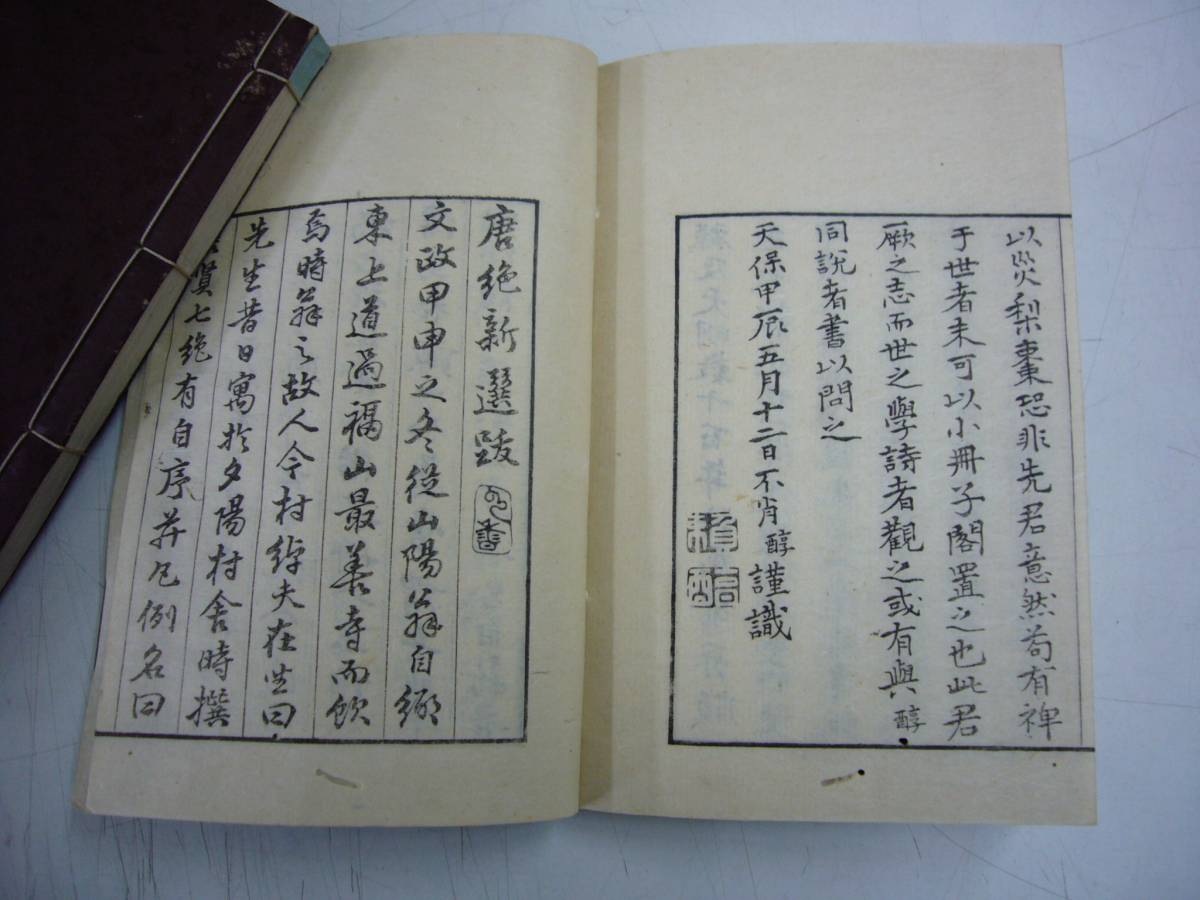 以災梨棗恐非先君意然苟有裨
于世者未可以小冊子閣置之也此君
厥之志而世之學詩者觀之或有與醇
同說者書以問之
天保甲辰五月十二日不肖醇謹識
唐絶新選跋
文政甲申之冬從山陽翁自鄉
東上道過福山最善寺而飲
焉時翁之故人今村綽夫在坐曰
先生昔日寓於夕陽村舍時撰
賢七絶有自序并凡例名曰